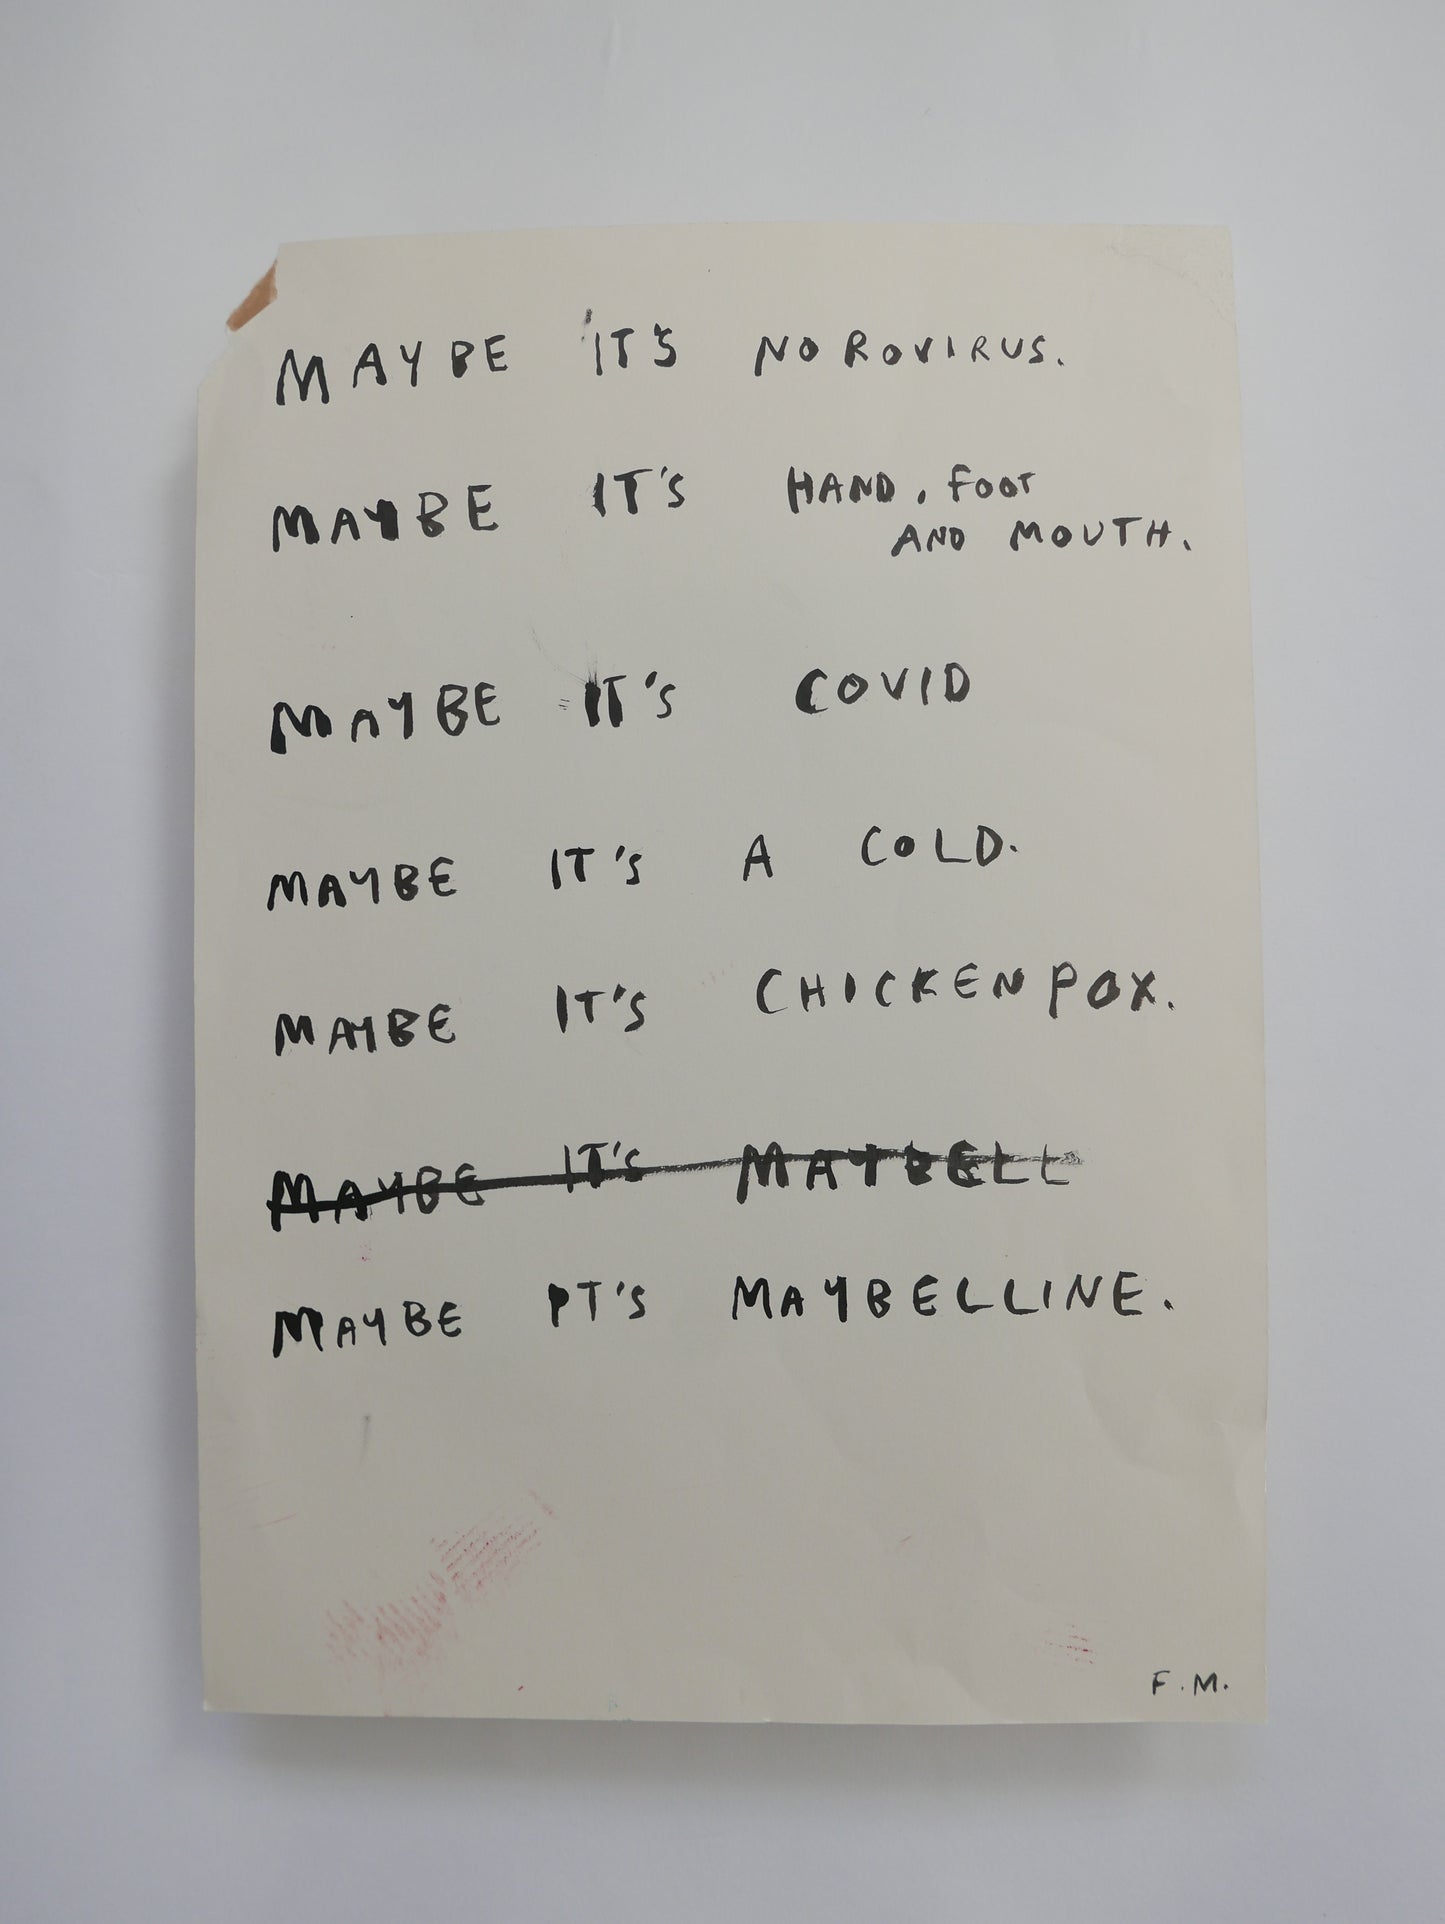 MAYBE IT'S NOROVIRUS.
MAYBE IT'S HAND, FOOT
AND MOUTH.
MAYBE IT'S COVID
MAYBE IT'S A COLD.
MAYBE IT'S CHICKEN POX.
MAYBE IT'S MAYBELL
MAYBE IT'S MAYBELLINE.
F.M.